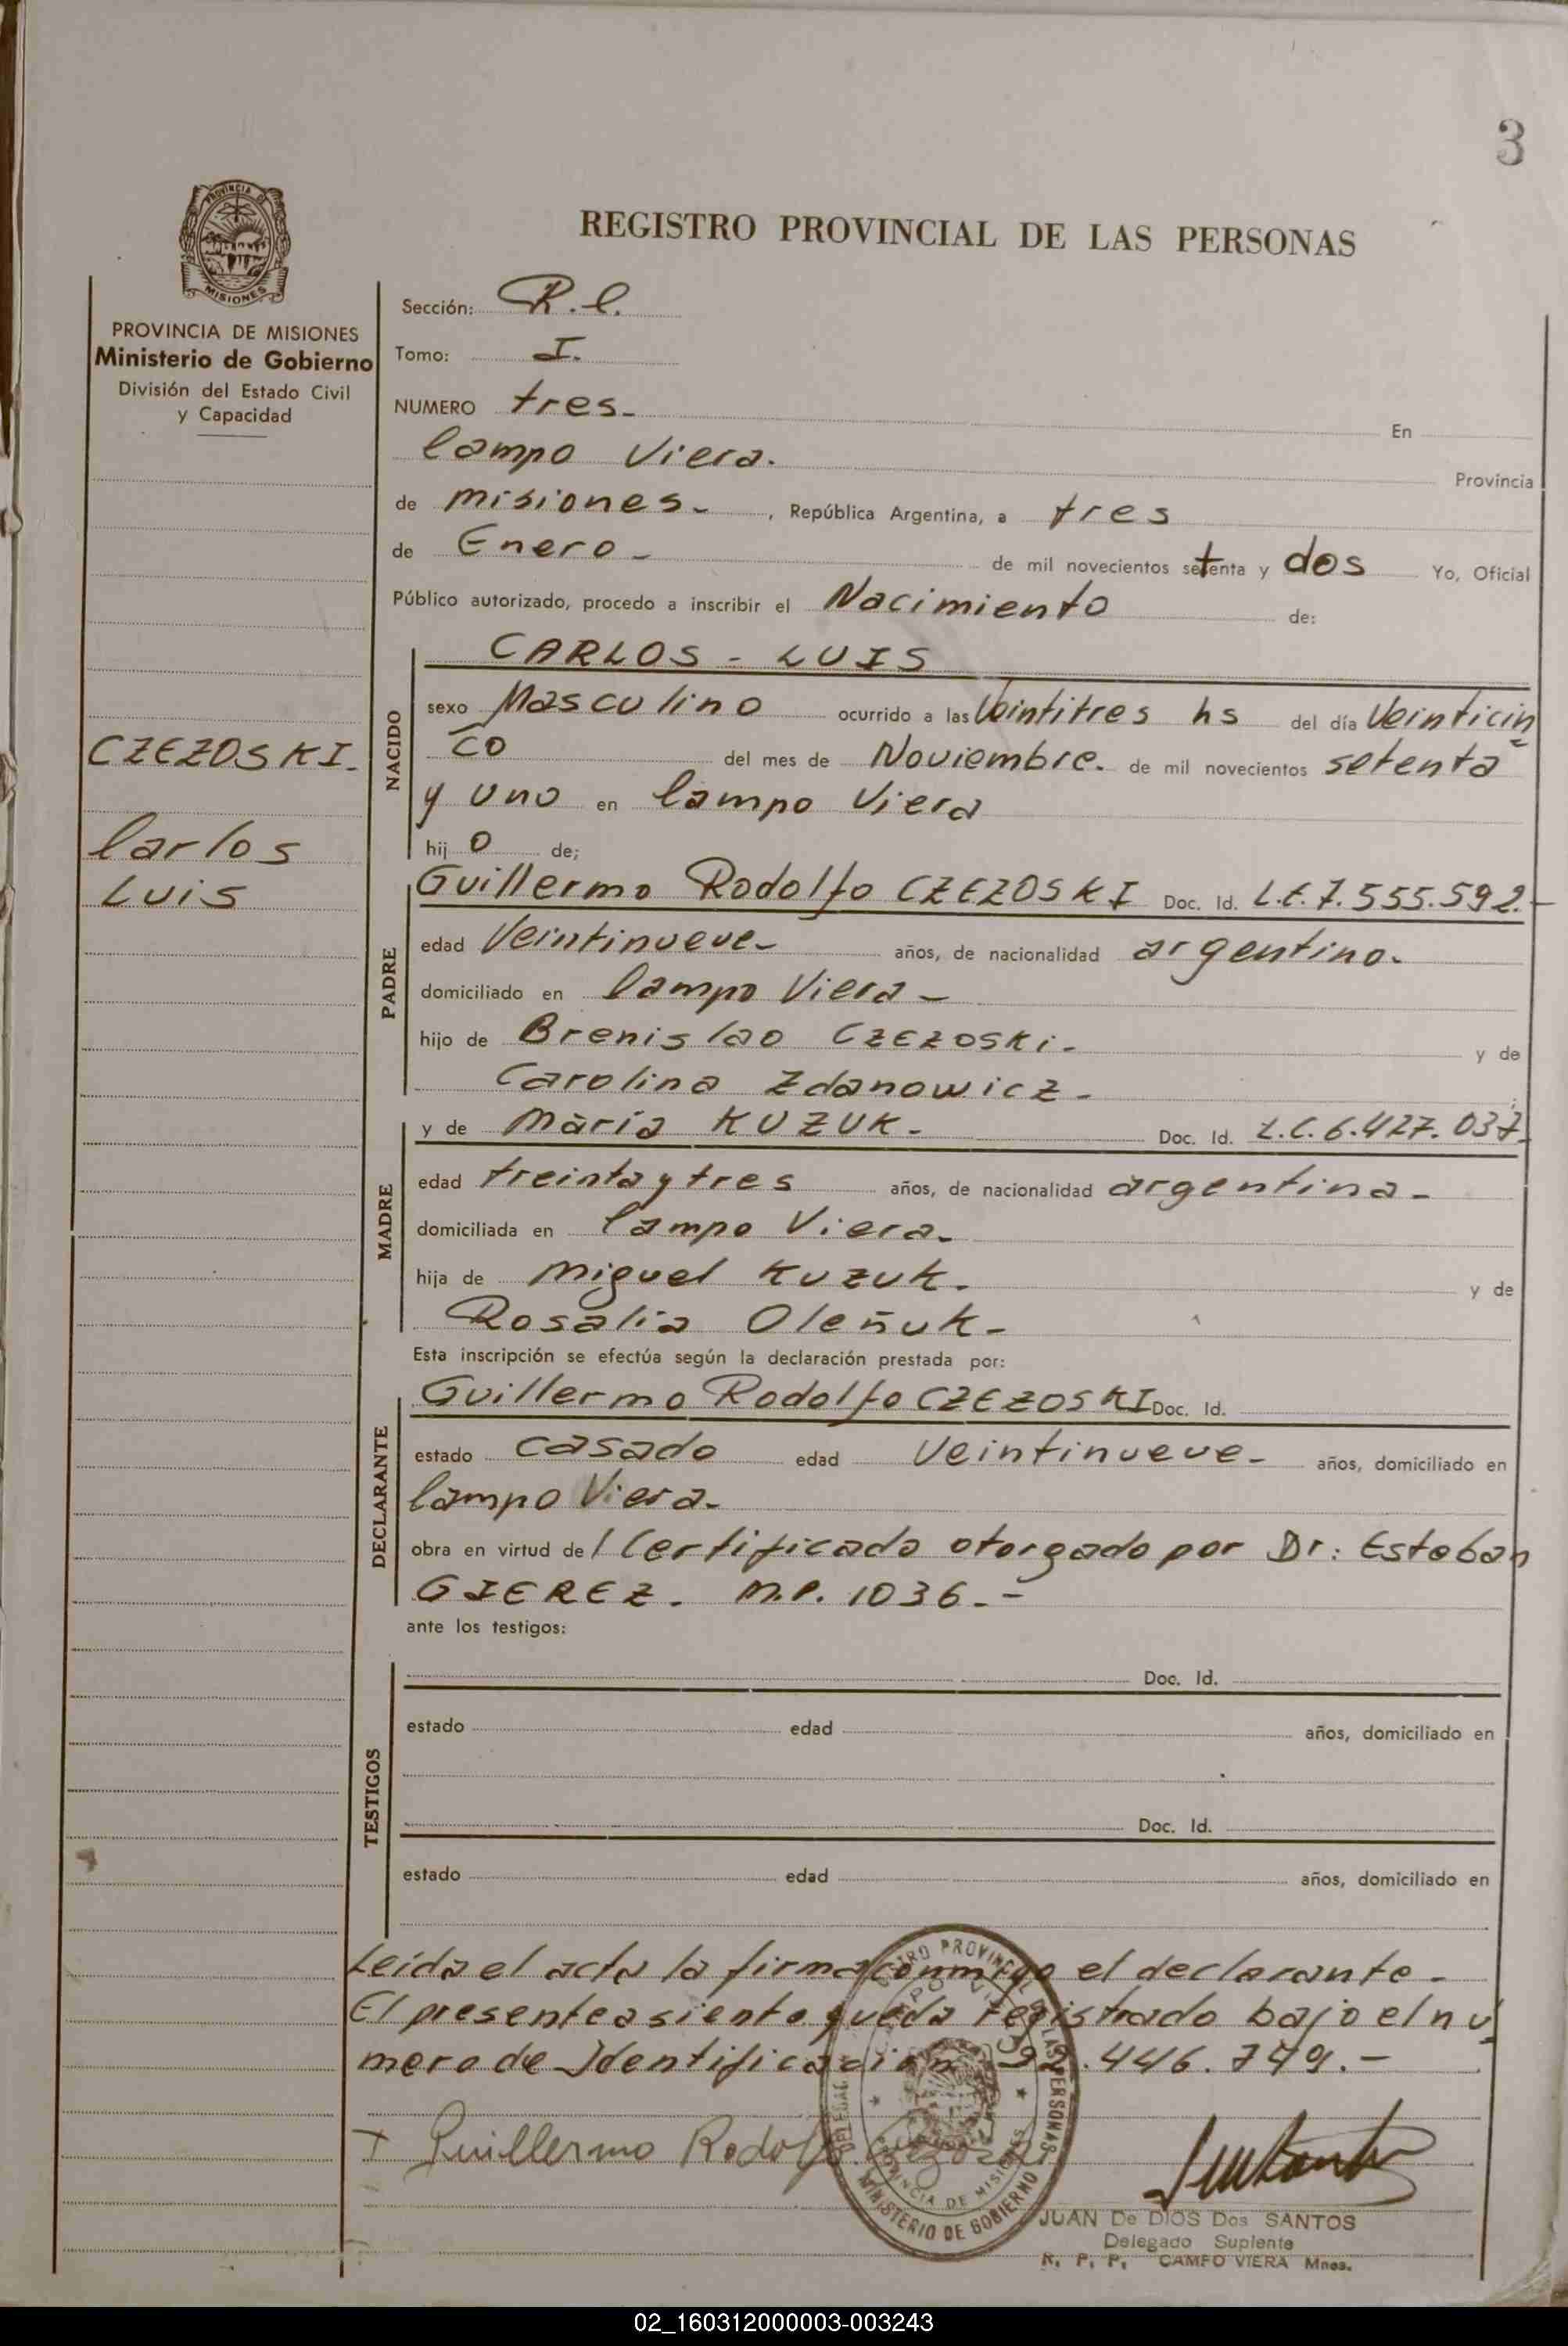 3
PROVINCIA DE
MISIONES
REGISTRO PROVINCIAL DE LAS PERSONAS
PROVINCIA DE MISIONES
Ministerio de Gobierno
División del Estado Civil
y Capacidad
CZEZOSKI.
Carlos
Luis
Sección: R.C.
Tomo: I.
NUMERO tres- En
Campo Viera. Provincia
de misiones- , República Argentina, a tres
de Enero- de mil novecientos setenta y dos Yo, Oficial
Público autorizado, procedo a inscribir el Nacimiento de:
NACIDO
CARLOS - LUIS
sexo Masculino ocurrido a las Veintitres hs del día Veinticin
co del mes de Noviembre. de mil novecientos setenta
y uno en Campo Viera
hij o de;
PADRE
Guillermo Rodolfo CZEZOSKI Doc. Id. L.E.7.555.592.-
edad Veintinueve- años, de nacionalidad argentino.
domiciliado en Campo Viera-
hijo de Brenislao CZEZOSKi- y de
Carolina Zdanowicz-
MADRE
y de María KUZUK- Doc. Id. L.C.6.427.037-
edad treinta y tres años, de nacionalidad argentina-
domiciliada en Campo Viera.
hija de Miguel KUZUK. y de
Rosalia Oleñuk-
Esta inscripción se efectúa según la declaración prestada por:
DECLARANTE
Guillermo Rodolfo CZEZOSKI Doc. Id.
estado casado edad Veintinueve- años, domiciliado en
Campo Viera.
obra en virtud de l Certificado otorgado por Dr: Esteban
GIEREZ. M.P. 1036.-
ante los testigos:
TESTIGOS
Doc. Id.
estado edad años, domiciliado en
Doc. Id.
estado edad años, domiciliado en
Leida el acta la firma conmigo el declarante-
El presente asiento queda registrado bajo el nu
mero de Identificación 92.446.749.-
Guillermo Rodolfo Czezoski
MINISTERIO DE GOBIERNO
PROVINCIA DE MISIONES
JUAN De DIOS Dos SANTOS
Delegado Suplente
R. P. P. CAMPO VIERA Mnes.
02_160312000003-003243